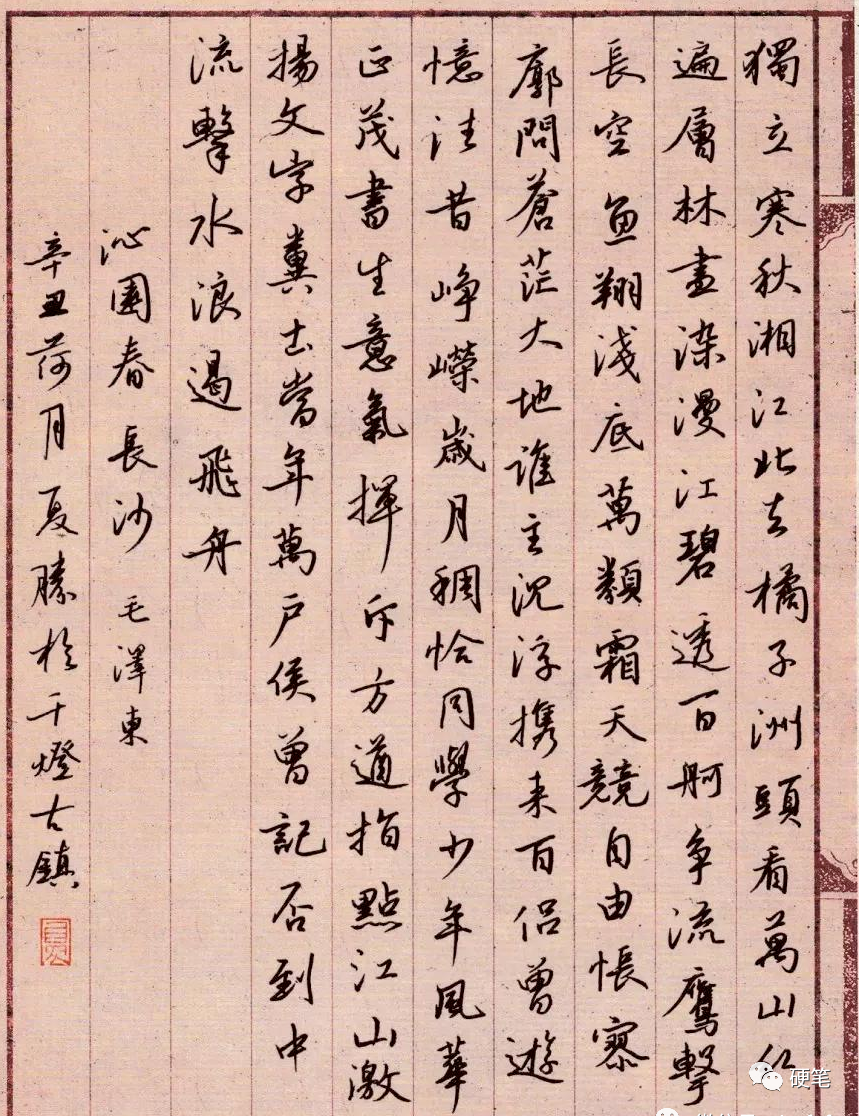 獨立寒秋湘江北去橘子洲頭看萬山紅
遍層林盡染漫江碧透百舸争流鷹擊
長空魚翔淺底萬類霜天競自由悵寥
廓問蒼茫大地誰主沉浮携来百侣曾遊
憶往昔峥嶸歲月稠恰同學少年風華
正茂書生意氣揮斥方遒指點江山激
揚文字糞土當年萬户侯曾記否到中
流擊水浪遏飛舟
沁園春長沙 毛澤東
辛丑荷月夏勝於千燈古鎮
硬笔